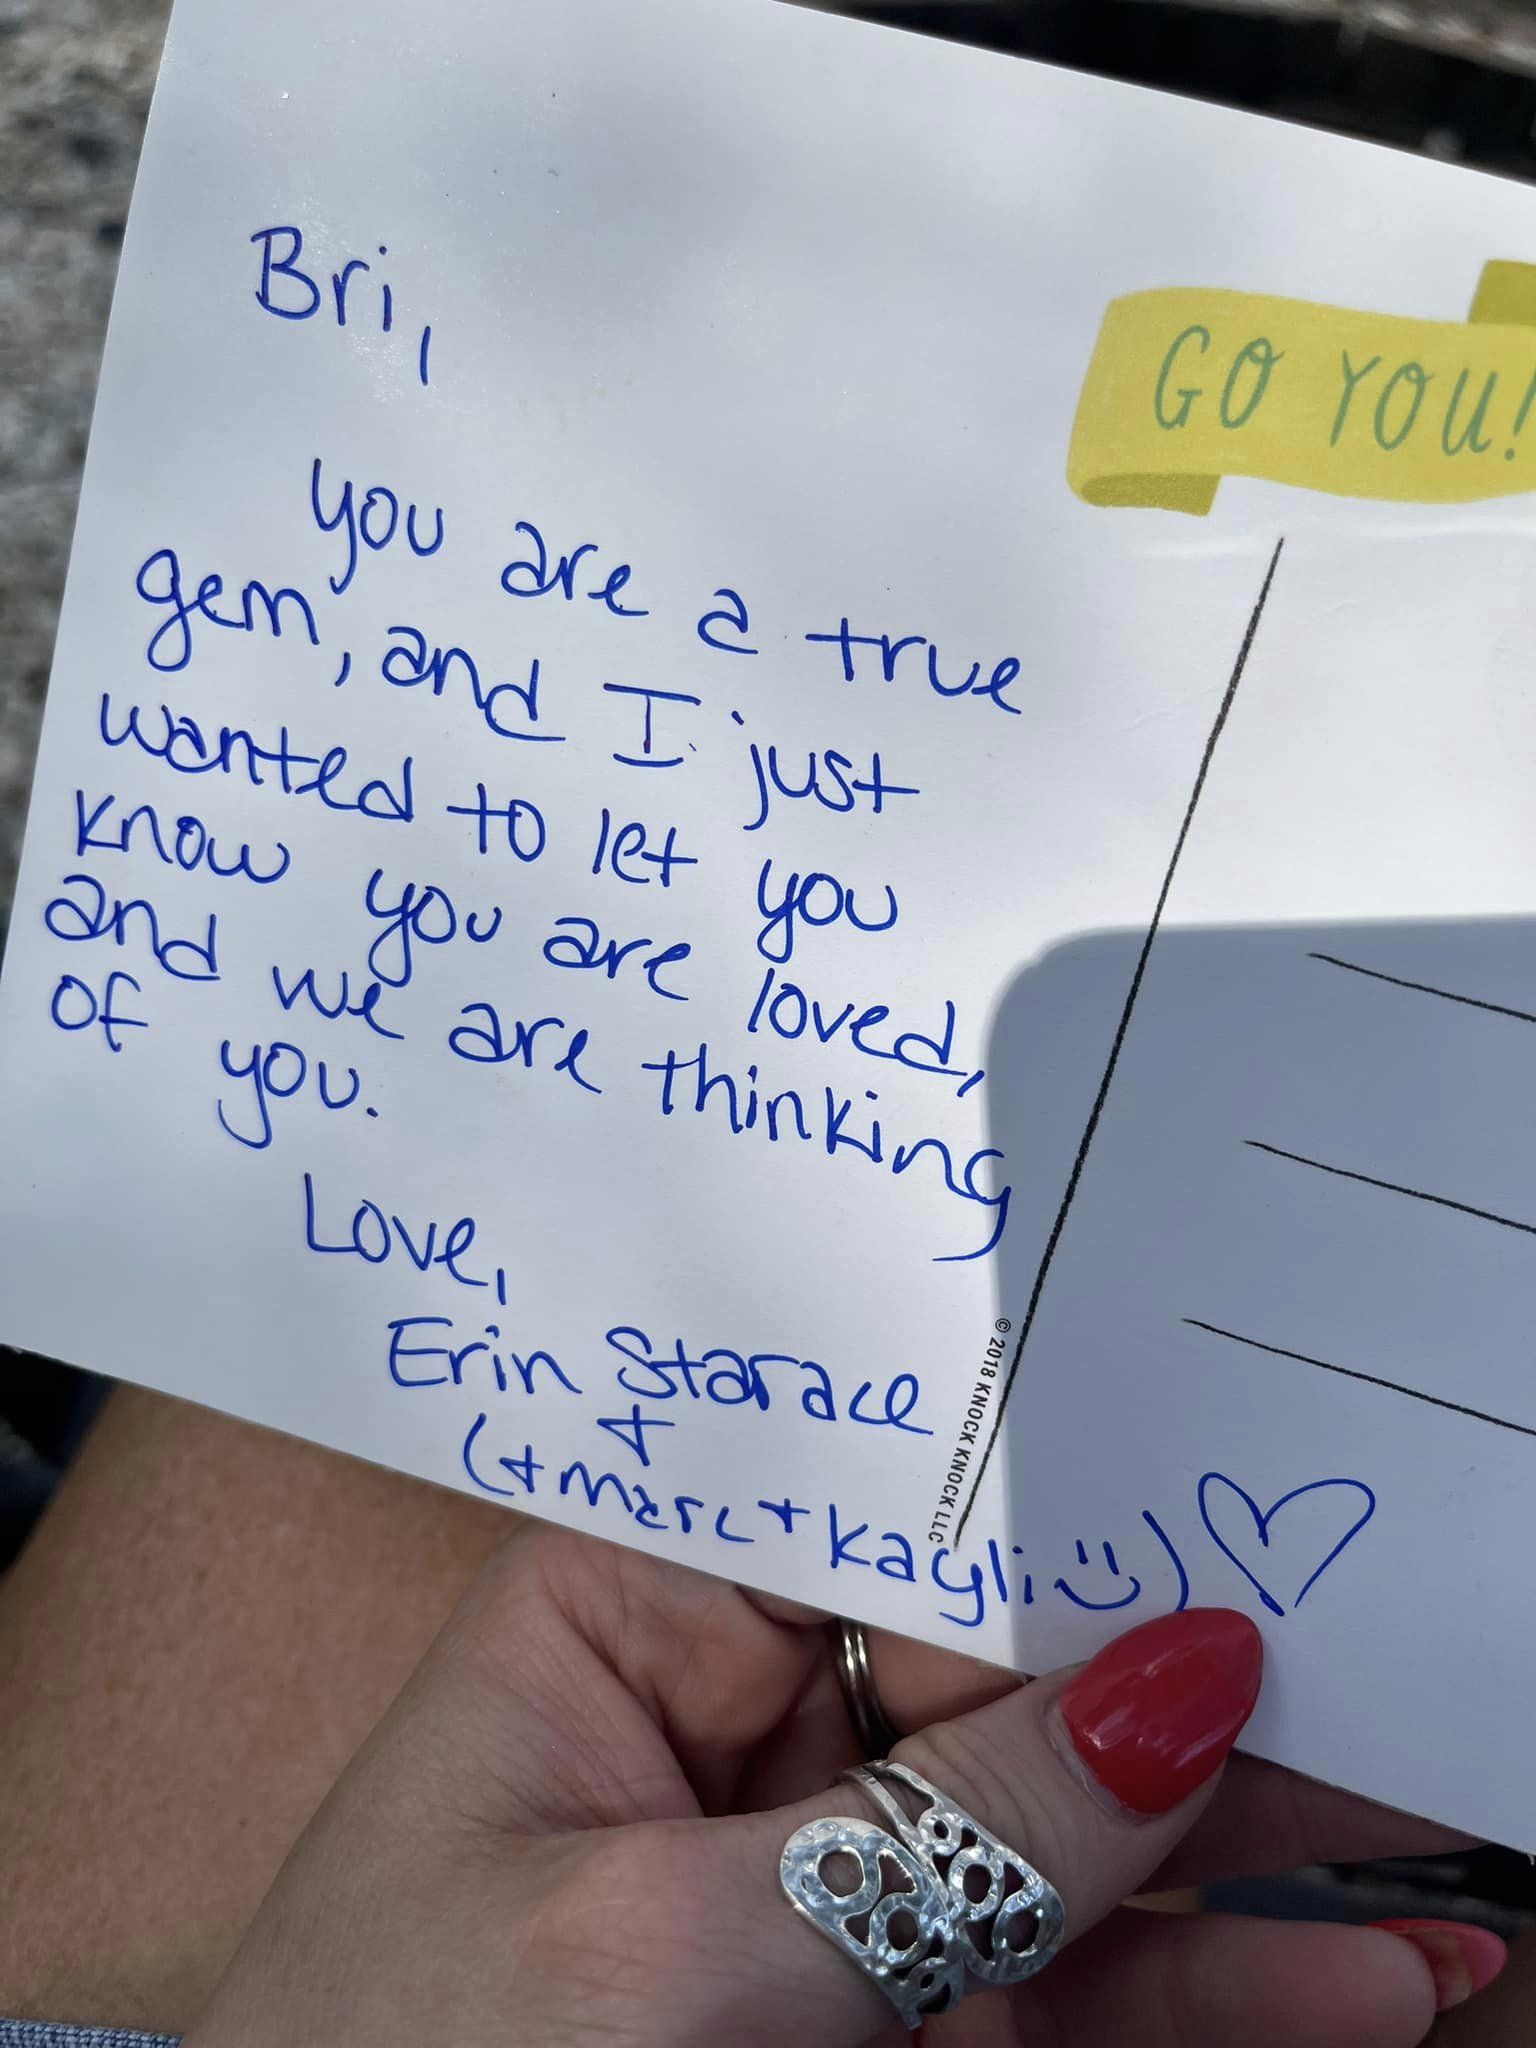 Bri,
you are a true
gem, and I just
wanted to let you
know you are loved,
and we are thinking
of you.
Love,
Erin Starace
+
(+ Marc + Kayli :) ) ♡
GO YOU!
© 2018 KNOCK KNOCK LLC